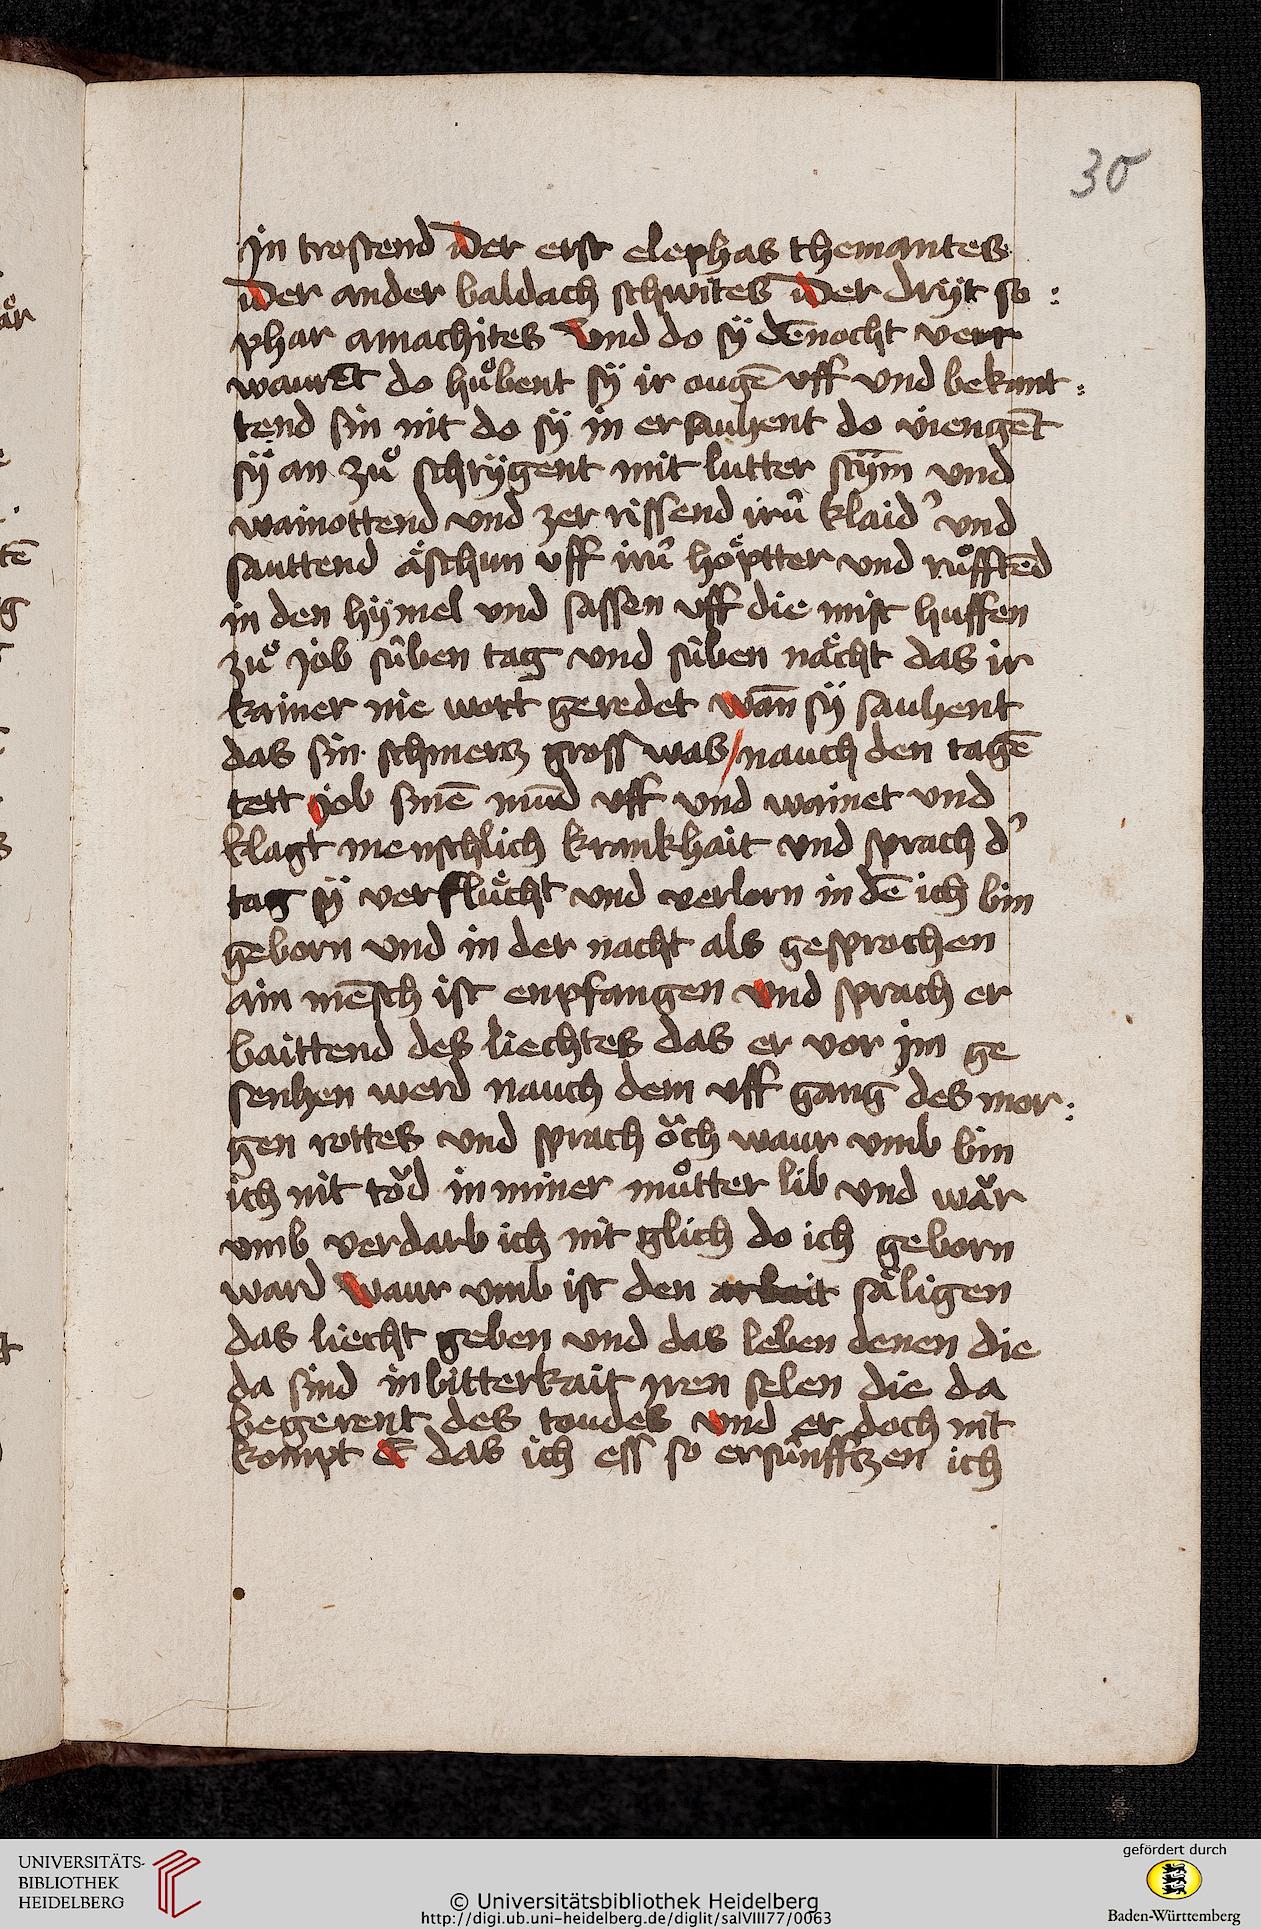 30
jn trostend Der erst elephas themantes
Der ander baldach schwites Der dryt so :
phar amachites Vnd do sÿ dēnocht verr
waurēt do hůbent sÿ ir ougē vff vnd bekant :
tend sin nit do sÿ in ersauhent do viengēt
sÿ an zů schrygent mit lutter stym̄ vnd
wainottend vnd zer rissend irū klaid' vnd
sauttend äschun vff irū höptter vnd růfftēd
in den hÿmel vnd sassen vff die mist huffen
zů job sûben tag vnd sûben nächt das ir
kainer nie wort geredet wañ sÿ sauhent
das sin schmertz gross was / nauch den tagē
tett job sinē mūd vff vnd wainet vnd
klagt menschlich krankhait vnd sprach d'
tag sÿ verflůcht vnd verlorn in dē ich bin
geborn vnd in der nacht als gesprochen
ain mēsch ist enpfangen vnd sprach er
baittend des liechtes das er vor jm ge
senhen werd nauch dem vff gang des mor :
gen rottes vnd sprach öch waur vmb bin
ich nit tŏd in miner můtter lib vnd wăr
vmb verdarb ich nit glich do ich geborn
ward Waur vmb ist den arbait säligen
das liecht geben vnd das leben denen die
da sind in bitterkait jren selen die da
begerent des toudes vnd er doch nit
kompt E das ich ess so ersûnfftzen ich
UNIVERSITÄTS-
BIBLIOTHEK
HEIDELBERG
© Universitätsbibliothek Heidelberg
http://digi.ub.uni-heidelberg.de/diglit/salVIII77/0063
gefördert durch
Baden-Württemberg